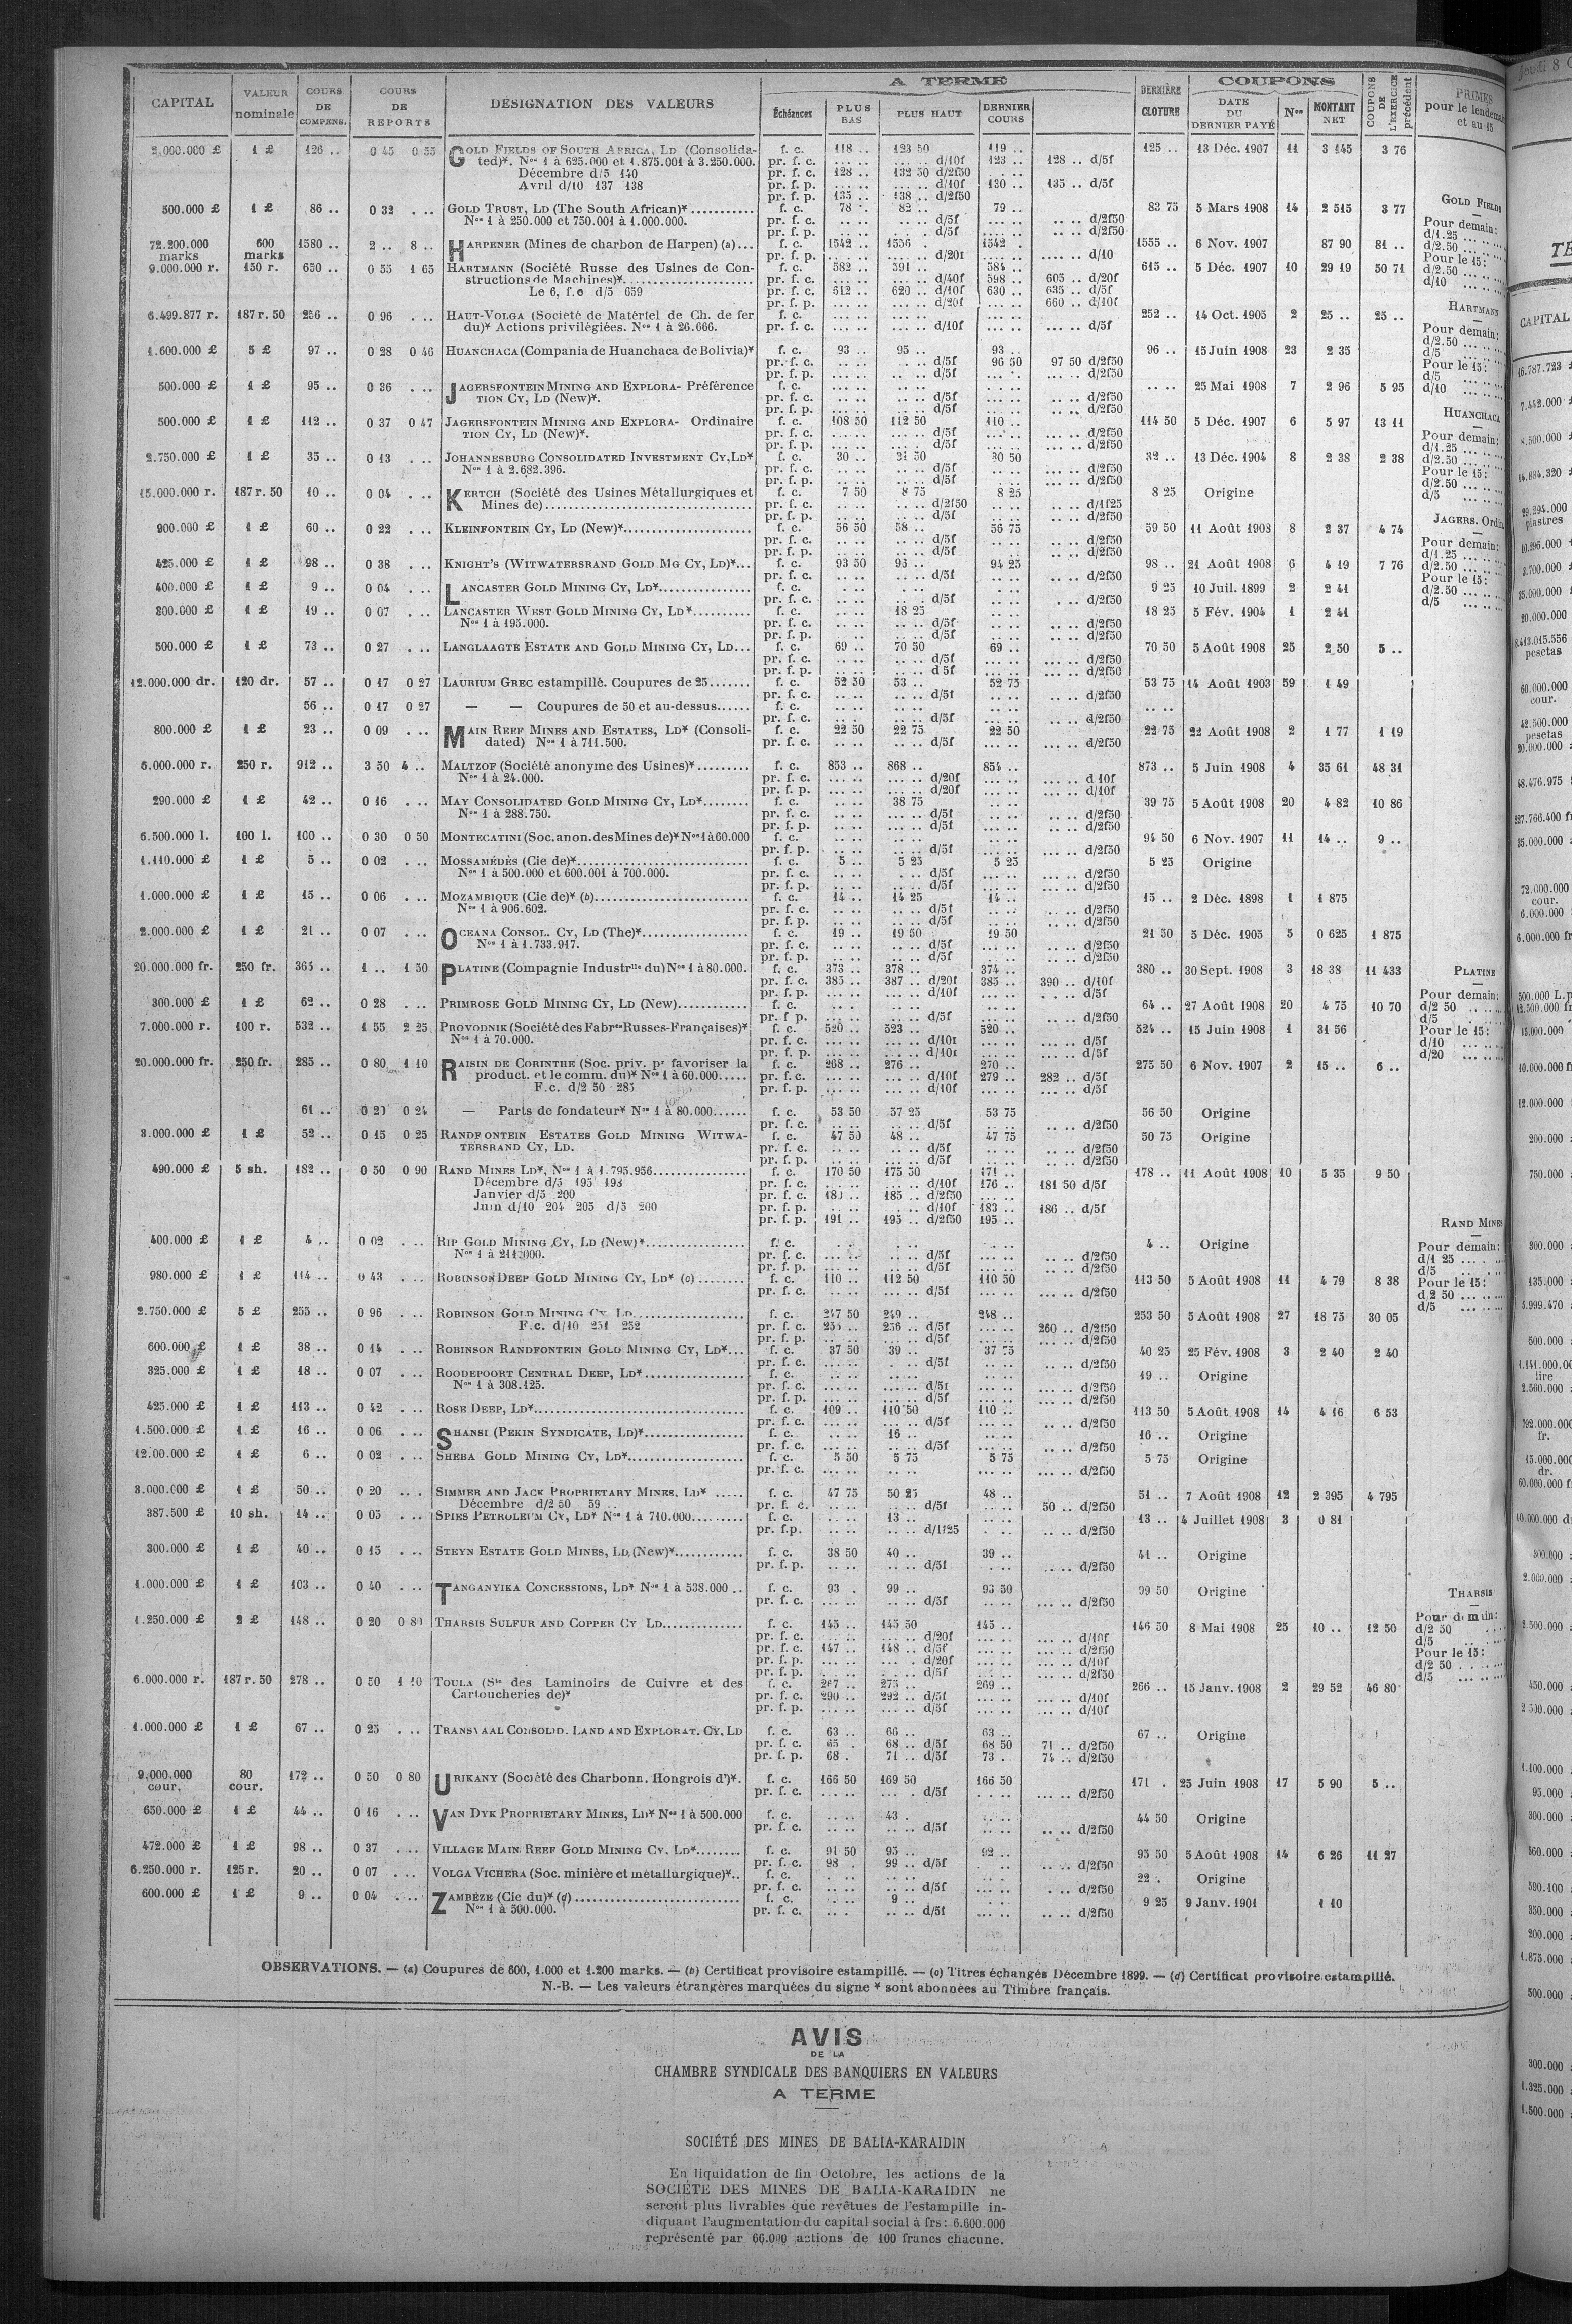 CAPITAL | VALEUR nominale | COURS DE COMPENS. | COURS DE REPORTS | DÉSIGNATION DES VALEURS | A TERME | Échéances | PLUS BAS | PLUS HAUT | DERNIER COURS | DERNIÈRE CLOTURE | COUPONS | DATE DU DERNIER PAYÉ | Nos | MONTANT NET | COUPONS DE L'EXERCICE précédent | PRIMES pour le lendemain et au 15
2.000.000 £ 1 £ 126 .. 0 45 0 55 GOLD FIELDS OF SOUTH AFRICA, LD (Consolida- f. c. 118 .. 123 50 119 .. 125 .. 13 Déc. 1907 11 3 145 3 76
ted)*. Nos 1 à 625.000 et 1.875.001 à 3.250.000. pr. f. c. ... .. ... .. d/10f 123 .. 128 .. d/5f
Décembre d/5 140 pr. f. c. 128 .. 132 50 d/2f50
Avril d/10 137 138 pr. f. p. ... .. ... .. d/10f 130 .. 135 .. d/5f
pr. f. p. 135 .. 138 .. d/2f50
500.000 £ 1 £ 86 .. 0 32 . .. GOLD TRUST, LD (The South African)* f. c. 78 .. 82 .. 79 .. 83 75 5 Mars 1908 14 2 515 3 77
Nos 1 à 250.000 et 750.001 à 1.000.000. pr. f. c. d/5f d/2f50
pr. f. p. d/5f d/2f50
72.200.000 marks 600 marks 1580 .. 2 .. 8 .. HARPENER (Mines de charbon de Harpen) (a)... f. c. 1542 .. 1556 . 1542 . 1555 .. 6 Nov. 1907 87 90 81 ..
pr. f. p. d/20f d/10
9.000.000 r. 150 r. 650 .. 0 55 1 65 HARTMANN (Société Russe des Usines de Con- f. c. 582 .. 591 .. 584 .. 615 .. 5 Déc. 1907 10 29 19 50 71
structions de Machines)* pr. f. c. d/40f 598 .. 605 .. d/20f
Le 6, f.c d/5 659 pr. f. c. 612 .. 620 .. d/10f 630 .. 635 .. d/5f
pr. f. p. d/20f 660 .. d/10f
6.499.877 r. 187 r. 50 256 .. 0 96 . .. HAUT-VOLGA (Société de Matériel de Ch. de fer f. c. 252 .. 14 Oct. 1905 2 25 .. 25 ..
du)* Actions privilégiées. Nos 1 à 26.666. pr. f. c. d/10f d/5f
1.600.000 £ 5 £ 97 .. 0 28 0 46 HUANCHACA (Compania de Huanchaca de Bolivia)* f. c. 93 .. 95 .. 93 .. 96 .. 15 Juin 1908 23 2 35
pr. f. c. d/5f 96 50 97 50 d/2f50
pr. f. p. d/5f d/2f50
500.000 £ 1 £ 95 .. 0 36 . .. JAGERSFONTEIN MINING AND EXPLORA- Préférence f. c. 25 Mai 1908 7 2 96 5 95
TION CY, LD (New)*. pr. f. c. d/5f d/2f50
pr. f. p. d/5f d/2f50
500.000 £ 1 £ 112 .. 0 37 0 47 JAGERSFONTEIN MINING AND EXPLORA- Ordinaire f. c. 108 50 112 50 110 .. 114 50 5 Déc. 1907 6 5 97 13 11
TION CY, LD (New)*. pr. f. c. d/5f d/2f50
pr. f. p. d/5f d/2f50
2.750.000 £ 1 £ 35 .. 0 13 . .. JOHANNESBURG CONSOLIDATED INVESTMENT CY, LD* f. c. 30 .. 31 50 30 50 32 .. 13 Déc. 1904 8 2 38 2 38
Nos 1 à 2.682.396. pr. f. c. d/5f d/2f50
pr. f. p. d/5f d/2f50
15.000.000 r. 187 r. 50 10 .. 0 04 . .. KERTCH (Société des Usines Métallurgiques et f. c. 7 50 8 75 8 25 8 25 Origine
Mines de) pr. f. c. d/2f50 d/1f25
pr. f. p. d/5f d/2f50
900.000 £ 1 £ 60 .. 0 22 . .. KLEINFONTEIN CY, LD (New)* f. c. 56 50 58 .. 56 75 59 50 11 Août 1908 8 2 37 4 74
pr. f. c. d/5f d/2f50
pr. f. p. d/5f d/2f50
425.000 £ 1 £ 98 .. 0 38 . .. KNIGHT'S (WITWATERSRAND GOLD MG CY, LD)*... f. c. 93 50 95 .. 94 25 98 .. 21 Août 1908 6 4 19 7 76
pr. f. c. d/5f d/2f50
400.000 £ 1 £ 9 .. 0 04 . .. LANCASTER GOLD MINING CY, LD* f. c. 9 25 10 Juil. 1899 2 2 41
pr. f. c. d/5f d/2f50
300.000 £ 1 £ 19 .. 0 07 . .. LANCASTER WEST GOLD MINING CY, LD* f. c. 18 25 18 25 5 Fév. 1904 1 2 41
Nos 1 à 195.000. pr. f. c. d/5f d/2f50
pr. f. p. d/5f d/2f50
500.000 £ 1 £ 73 .. 0 27 . .. LANGLAAGTE ESTATE AND GOLD MINING CY, LD... f. c. 69 .. 70 50 69 .. 70 50 5 Août 1908 25 2 50 5 ..
pr. f. c. d/5f d/2f50
pr. f. p. d 5f d/2f50
12.000.000 dr. 120 dr. 57 .. 0 17 0 27 LAURIUM GREC estampillé. Coupures de 25 f. c. 52 50 53 .. 52 75 53 75 14 Août 1903 59 1 49
pr. f. c. d/5f d/2f50
56 .. 0 17 0 27 — — Coupures de 50 et au-dessus f. c.
pr. f. c. d/5f d/2f50
800.000 £ 1 £ 23 .. 0 09 . .. MAIN REEF MINES AND ESTATES, LD* (Consoli- f. c. 22 50 22 75 22 50 22 75 22 Août 1908 2 1 77 1 19
dated) Nos 1 à 711.500. pr. f. c. d/5f d/2f50
6.000.000 r. 250 r. 912 .. 3 50 4 .. MALTZOF (Société anonyme des Usines)* f. c. 853 .. 868 .. 854 .. 873 .. 5 Juin 1908 4 35 61 48 31
Nos 1 à 24.000. pr. f. c. d/20f d 10f
pr. f. p. d/20f d/10f
290.000 £ 1 £ 42 .. 0 16 . .. MAY CONSOLIDATED GOLD MINING CY, LD* f. c. 38 75 39 75 5 Août 1908 20 4 82 10 86
Nos 1 à 288.750. pr. f. c. d/5f d/2f50
pr. f. p. d/5f d/2f50
6.500.000 l. 100 l. 100 .. 0 30 0 50 MONTECATINI (Soc. anon. des Mines de)* Nos 1 à 60.000 f. c. 94 50 6 Nov. 1907 11 14 .. 9 ..
pr. f. p. d/5f d/2f50
1.110.000 £ 1 £ 5 .. 0 02 . .. MOSSAMÉDÈS (Cie de)* f. c. 5 .. 5 25 5 25 5 25 Origine
Nos 1 à 500.000 et 600.001 à 700.000. pr. f. c. d/5f d/2f50
pr. f. p. d/5f d/2f50
1.000.000 £ 1 £ 15 .. 0 06 . .. MOZAMBIQUE (Cie de)* (b) f. c. 14 .. 14 25 14 .. 15 .. 2 Déc. 1898 1 1 875
Nos 1 à 906.602. pr. f. c. d/5f d/2f50
pr. f. p. d/5f d/2f50
2.000.000 £ 1 £ 21 .. 0 07 . .. OCEANA CONSOL. CY, LD (The)* f. c. 19 .. 19 50 19 50 21 50 5 Déc. 1905 5 0 625 1 875
Nos 1 à 1.733.917. pr. f. c. d/5f d/2f50
pr. f. p. d/5f d/2f50
20.000.000 fr. 250 fr. 365 .. 1 .. 1 50 PLATINE (Compagnie Industrlle du) Nos 1 à 80.000. f. c. 373 .. 378 .. 374 .. 380 .. 30 Sept. 1908 3 18 38 11 433
pr. f. c. 385 .. 387 .. d/20f 385 .. 390 .. d/10f
pr. f. p. d/10f d/5f
300.000 £ 1 £ 62 .. 0 28 . .. PRIMROSE GOLD MINING CY, LD (New) f. c. 64 .. 27 Août 1908 20 4 75 10 70
pr. f p. d/5f d/2f50
7.000.000 r. 100 r. 532 .. 1 55 2 25 PROVODNIK (Société des Fabres Russes-Françaises)* f. c. 520 .. 523 .. 520 .. 524 .. 15 Juin 1908 1 31 56
Nos 1 à 70.000. pr. f. c. d/10f d/5f
pr. f. p. d/10f d/5f
20.000.000 fr. 250 fr. 285 .. 0 80 1 10 RAISIN DE CORINTHE (Soc. priv. pr favoriser la f. c. 268 .. 276 .. 270 .. 275 50 6 Nov. 1907 2 15 .. 6 ..
product. et le comm. du)* Nos 1 à 60.000 pr. f. c. d/10f 279 .. 282 .. d/5f
F.c. d/2 50 285 pr. f. p. d/10f d/5f
61 .. 0 20 0 24 — Parts de fondateur* Nos 1 à 80.000 f. c. 53 50 57 25 53 75 56 50 Origine
pr. f. c. d/5f d/2f50
3.000.000 £ 1 £ 52 .. 0 15 0 25 RANDFONTEIN ESTATES GOLD MINING WITWA- f. c. 47 50 48 .. 47 75 50 75 Origine
TERSRAND CY, LD. pr. f. c. d/5f d/2f50
pr. f. p. d/5f d/2f50
490.000 £ 5 sh. 182 .. 0 50 0 90 RAND MINES LD*, Nos 1 à 1.795.956 f. c. 170 50 175 50 171 .. 178 .. 11 Août 1908 10 5 35 9 50
Décembre d/5 195 198 pr. f. c. d/10f 176 .. 181 50 d/5f
Janvier d/5 200 pr. f. c. 185 .. d/2f50
Juin d/10 204 205 d/5 200 pr. f. p. d/10f 183 .. 186 .. d/5f
pr. f. p. 191 .. 195 .. d/2f50 195 ..
400.000 £ 1 £ 4 .. 0 02 . .. RIP GOLD MINING CY, LD (New)* f. c. 4 .. Origine
Nos 1 à 211.000. pr. f. c. d/5f d/2f50
pr. f. p. d/5f d/2f50
980.000 £ 1 £ 114 .. 0 43 . .. ROBINSON DEEP GOLD MINING CY, LD* (c) f. c. 110 .. 112 50 110 50 113 50 5 Août 1908 11 4 79 8 38
pr. f. c. d/5f d/2f50
2.750.000 £ 5 £ 255 .. 0 96 . .. ROBINSON GOLD MINING CY LD f. c. 247 50 249 .. 248 .. 253 50 5 Août 1908 27 18 75 30 05
F.c. d/10 251 252 pr. f. c. 255 .. 256 .. d/5f 260 .. d/2f50
pr. f. p. d/5f d/2f50
600.000 £ 1 £ 38 .. 0 14 . .. ROBINSON RANDFONTEIN GOLD MINING CY, LD*... f. c. 37 50 39 .. 37 75 40 25 25 Fév. 1908 3 2 40 2 40
pr. f. c. d/5f d/2f50
325.000 £ 1 £ 18 .. 0 07 ROODEPOORT CENTRAL DEEP, LD* f. c. 19 .. Origine
Nos 1 à 308.125. pr. f. c. d/5f d/2f50
pr. f. p. d/5f d/2f50
425.000 £ 1 £ 113 .. 0 42 . .. ROSE DEEP, LD* f. c. 109 .. 110 50 110 .. 113 50 5 Août 1908 14 4 16 6 53
pr. f. c. d/5f d/2f50
1.500.000 £ 1 £ 16 .. 0 06 . .. SHANSI (PEKIN SYNDICATE, LD)* f. c. 16 .. 16 .. Origine
pr. f. c. d/5f d/2f50
12.00.000 £ 1 £ 6 .. 0 02 . .. SHEBA GOLD MINING CY, LD* f. c. 5 50 5 75 5 75 5 75 Origine
pr. f. c. d/2f50
3.000.000 £ 1 £ 50 .. 0 20 . .. SIMMER AND JACK PROPRIETARY MINES, LD* f. c. 47 75 50 25 48 .. 51 .. 7 Août 1908 12 2 395 4 795
Décembre d/2 50 59 .. pr. f. c. d/5f 50 .. d/2f50
387.500 £ 10 sh. 14 .. 0 05 . .. SPIES PETROLEUM CY, LD* Nos 1 à 710.000 f. c. 13 .. 13 .. 4 Juillet 1908 3 0 81
pr. f.p. d/1f25 d/2f50
300.000 £ 1 £ 40 .. 0 15 . .. STEYN ESTATE GOLD MINES, LD (New)* f. c. 38 50 40 .. 39 .. 41 .. Origine
pr. f. p. d/5f d/2f50
1.000.000 £ 1 £ 103 .. 0 40 . .. TANGANYIKA CONCESSIONS, LD* Nos 1 à 538.000 .. f. c. 93 . 99 .. 93 50 99 50 Origine
pr. f. c. d/5f d/2f50
1.250.000 £ 2 £ 148 .. 0 20 0 80 THARSIS SULFUR AND COPPER CY LD f. c. 145 .. 145 50 145 .. 146 50 8 Mai 1908 25 10 .. 12 50
pr. f. c. d/20f d/10f
pr. f. c. 147 .. 148 .. d/5f d/2f50
pr. f. p. d/20f d/10f
pr. f. p. d/5f d/2f50
6.000.000 r. 187 r. 50 278 .. TOULA (Sté des Laminoirs de Cuivre et des f. c. 267 .. 275 .. 269 .. 266 .. 15 Janv. 1908 2 29 52 46 80
Cartoucheries de)* pr. f. c. 290 .. 292 .. d/5f d/10f
pr. f. p. d/5f d/10f
1.000.000 £ 1 £ 67 .. 0 25 . .. TRANSVAAL CONSOLID. LAND AND EXPLORAT. CY. LD f. c. 63 .. 66 .. 63 .. 67 .. Origine
pr. f. c. 65 . 68 .. d/5f 68 50 71 .. d/2f50
pr. f. p. 68 . 71 .. d/5f 73 . 74 .. d/2f50
9.000.000 cour. 80 cour. 172 .. 0 50 0 80 URIKANY (Société des Charbonn. Hongrois d')*. f. c. 166 50 169 50 166 50 171 . 25 Juin 1908 17 5 90 5 ..
pr. f. c. d/5f d/2f50
650.000 £ 1 £ 44 .. 0 16 . .. VAN DYK PROPRIETARY MINES, LD* Nos 1 à 500.000 f. c. 43 . 44 50 Origine
pr. f. c. d/5f d/2f50
472.000 £ 1 £ 98 .. 0 37 . .. VILLAGE MAIN REEF GOLD MINING CY. LD* f. c. 91 50 95 .. 92 .. 95 50 5 Août 1908 14 6 26 11 27
pr. f. c. 98 . 99 .. d/5f d/2f50
6.250.000 r. 125 r. 20 .. 0 07 . .. VOLGA VICHERA (Soc. minière et métallurgique)*.. f. c. 22 . Origine
pr. f. c. d/5f d/2f50
600.000 £ 1 £ 9 .. 0 04 . .. ZAMBÈZE (Cie du)* (d) f. c. 9 .. 9 25 9 Janv. 1901 1 10
Nos 1 à 500.000. pr. f. c. d/5f d/2f50
GOLD FIELDS
Pour demain:
d/1.25
d/2.50
Pour le 15:
d/2.50
d/10
HARTMANN
Pour demain:
d/2.50
d/5
Pour le 15:
d/5
d/10
HUANCHACA
Pour demain:
d/1.25
d/2.50
Pour le 15:
d/2.50
d/5
JAGERS. Ordin
Pour demain:
d/1.25
d/2.50
Pour le 15:
d/2.50
d/5
PLATINE
Pour demain:
d/2 50
d/5
Pour le 15:
d/10
d/20
RAND MINES
Pour demain:
d/1 25
d/5
Pour le 15:
d/2 50
d/5
THARSIS
Pour demain:
d/2 50
d/5
Pour le 15:
d/2 50
d/5
OBSERVATIONS. — (a) Coupures de 600, 1.000 et 1.200 marks. — (b) Certificat provisoire estampillé. — (c) Titres échangés Décembre 1899. — (d) Certificat provisoire estampillé.
N.-B. — Les valeurs étrangères marquées du signe * sont abonnées au Timbre français.
AVIS
DE LA
CHAMBRE SYNDICALE DES BANQUIERS EN VALEURS
A TERME
SOCIÉTÉ DES MINES DE BALIA-KARAIDIN
En liquidation de fin Octobre, les actions de la
SOCIÉTÉ DES MINES DE BALIA-KARAIDIN ne
seront plus livrables que revêtues de l'estampille in-
diquant l'augmentation du capital social à frs: 6.600.000
représenté par 66.000 actions de 100 francs chacune.
Jeudi 8
CAPITAL